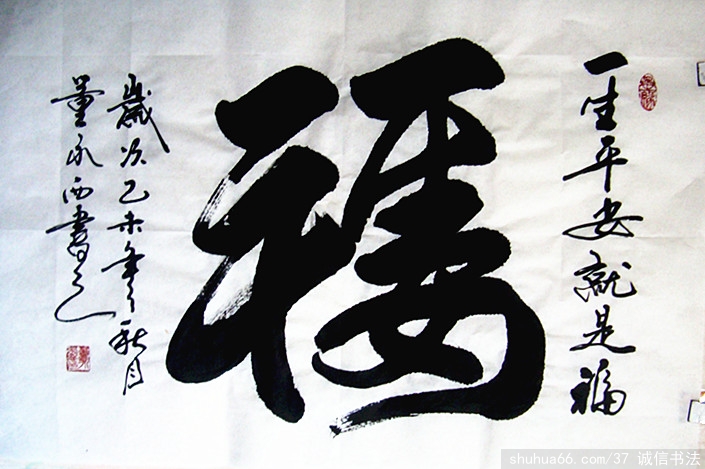 一生平安就是福
福
歲次乙未年秋月
董永西書之
shuhua66.com/37 诚信书法